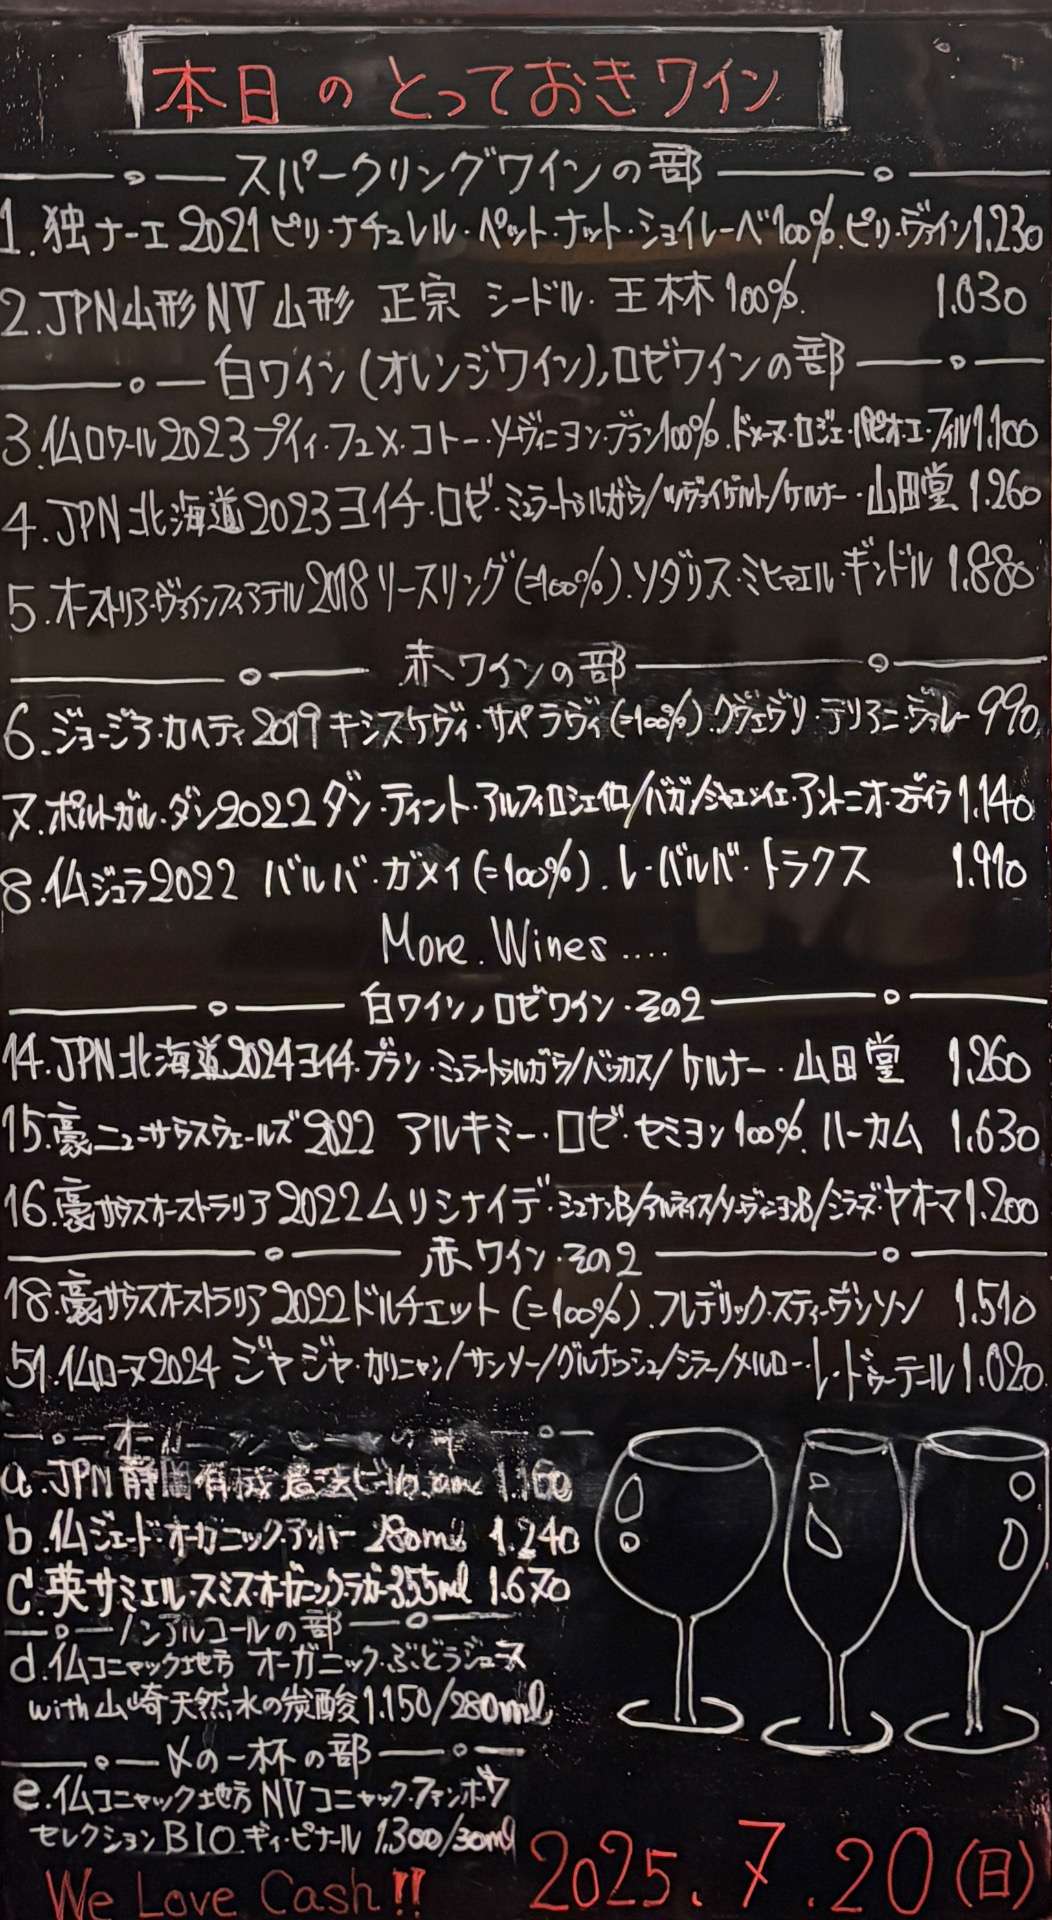 本日のとっておきワイン
スパークリングワインの部
1.独ナーエ2021ピリ・ナチュレル・ペット・ナット・ショイレーベ100%.ピリ・ヴァイン1.230
2.JPN山形NV山形 正宗 シードル・王林100%. 1.030
白ワイン(オレンジワイン),ロゼワインの部
3.仏ロワール2023プイィ・フュメ・コトー・ソーヴィニヨン・ブラン100%.ドメーヌ・ロジェ・パビオ・エ・フィル1.100
4.JPN北海道2023ヨイチ・ロゼ・ミュラートゥルガウ/ツヴァイゲルト/ケルナー・山田堂 1.260
5.オーストリア・ヴァインフィアテル2018リースリング(=100%).ソダリス・ミヒャエル・ギンドル 1.880
赤ワインの部
6.ジョージア・カヘティ2019キシスケヴィ・サペラヴィ(=100%).クヴェヴリ・デリアニ・ヴァレー 990
7.ポルトガル・ダン2022ダン・ティント・アルフィロシェイロ/バガ/ジャエン/エ・アントニオ・マデイラ1.140
8.仏ジュラ2022 バルバ・ガメイ(=100%).レ・バルバ・トラクス 1.910
More Wines....
白ワイン,ロゼワイン・その2
14.JPN北海道2024ヨイチ・ブラン・ミュラートゥルガウ/バッカス/ケルナー・山田堂 1.260
15.豪ニューサウスウェールズ2022 アルキミー・ロゼ・セミヨン100%.ハーカム 1.630
16.豪サウスオーストラリア2022ムリシナイデ・シュナンB/アルネイス/ソーヴィニヨンB/シラーズ・ヤオーマ1.200
赤ワイン・その2
18.豪サウスオーストラリア2022ドルチェット(=100%).フレデリック・スティーヴンソン 1.510
51.仏ローヌ2024 ジャジャ・カリニャン/サンソー/グルナッシュ/シラー/メルロー・レ・ドゥーテール1.020
a.JPN静岡有機農法ビール 1.160
b.仏ジェード・オーガニック・アンバー 280ml 1.240
C.英サミエルスミス・オーガニックラガー355ml 1.670
ノンアルコールの部
d.仏コニャック地方 オーガニック・ぶどうジュース
with山崎天然水の炭酸1.150/280ml
〆の一杯の部
e.仏コニャック地方NVコニャック・ファンボワ
セレクションBIO.ギィ・ピナール 1.300/30ml
We Love Cash!! 2025.7.20(日)